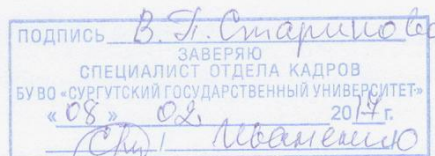 ПОДПИСЬ В.П. Старикова
ЗАВЕРЯЮ
СПЕЦИАЛИСТ ОТДЕЛА КАДРОВ
БУ ВО «СУРГУТСКИЙ ГОСУДАРСТВЕННЫЙ УНИВЕРСИТЕТ»
«08» 02 2017 г.
/ Иваненко